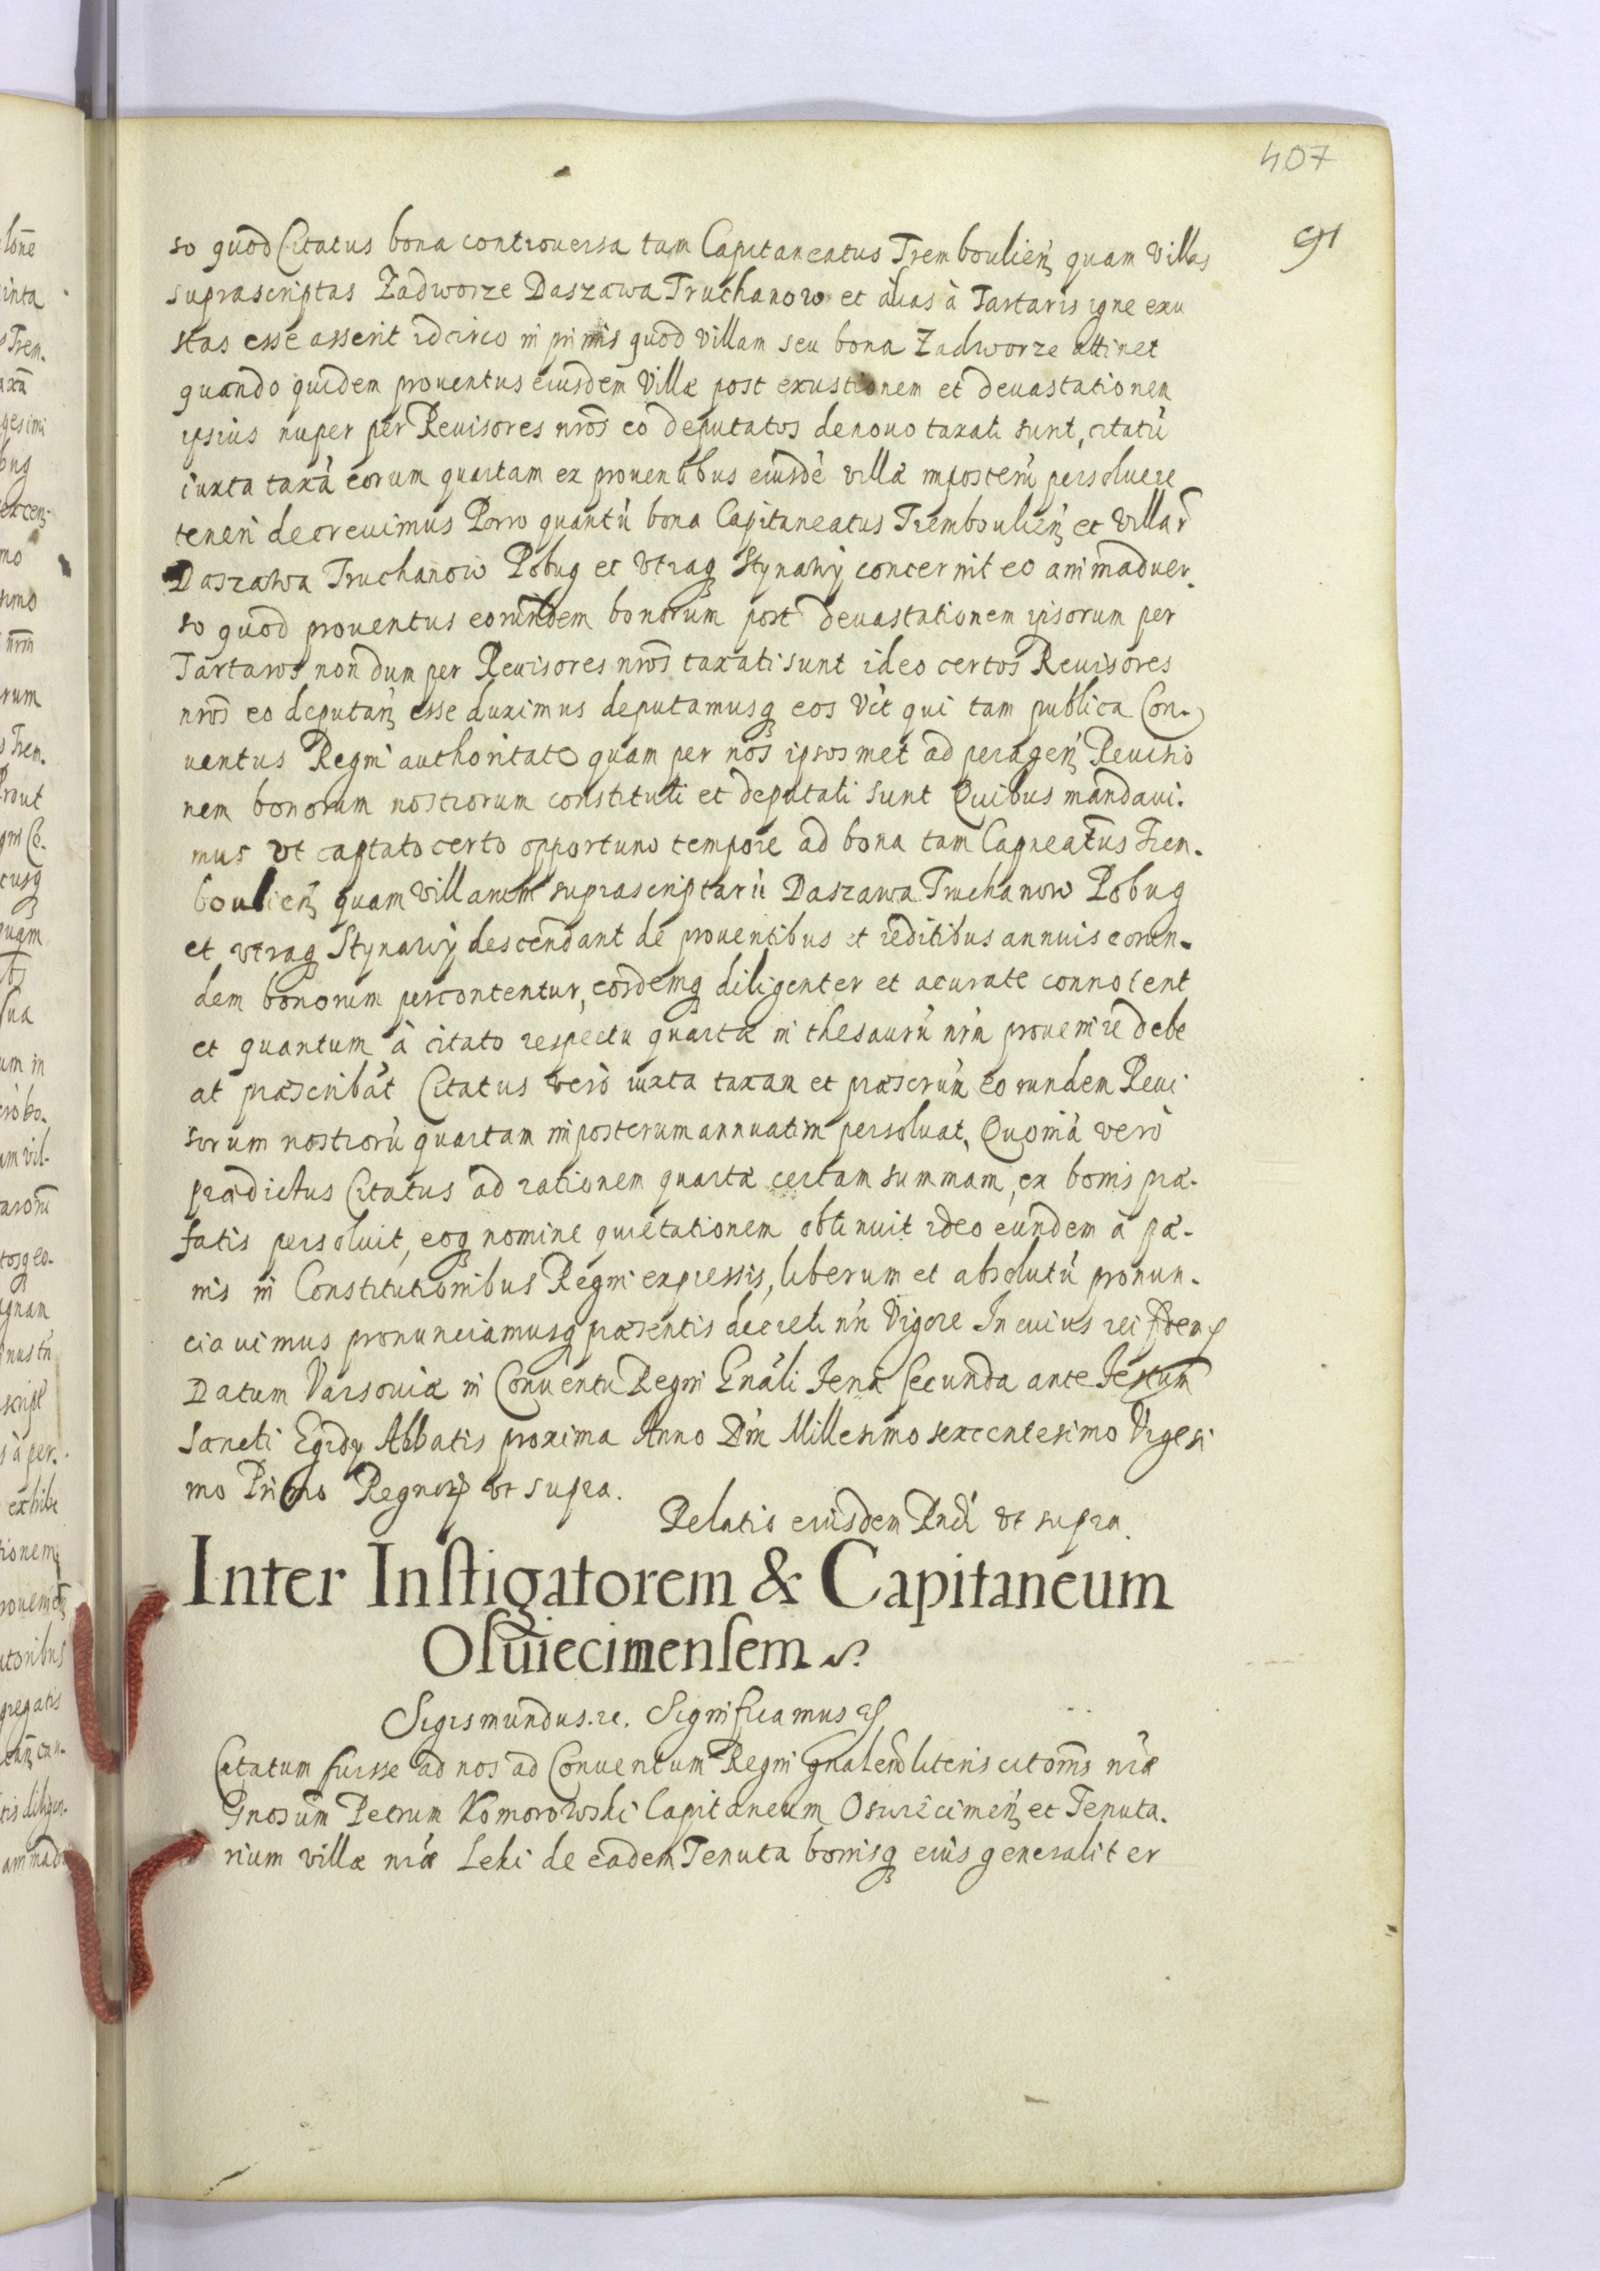 407
91
so quod Citatus bona controuersa tam Capitaneatus Tremboulien̄ quam Villas
suprascriptas Zadworze Daszawa Truchanow et alias à Tartaris igne exu
stas esse asserit idcirco in primis quod villam seu bona Zadworze attinet
quando quidem prouentus eiusdem Villæ post exustionem et deuastationem
ipsius nuper per Reuisores nr̄os eo deputatos denouo taxati sunt, citatū
iuxta taxā eorum quartam ex prouentibus eiusdē villæ inposterū persoluere
teneri decreuimus Porro quantū bona Capitaneatus Tremboulien̄ et Villar̄
Daszawa Truchanow Pobug et vtraq Stynawy concernit eo animaduer-
so quod prouentus eorundem bonorum post deuastationem ipsorum per
Tartaros non dum per Reuisores nr̄os taxati sunt ideo certos Reuisores
nr̄os eo deputan̄ esse duximus deputamusq eos Vīt qui tam publica Con-
uentus Regni authoritate quam per nos ipsosmet ad peragen̄ Reuisio
nem bonorum nostrorum constituti et deputati sunt Quibus mandaui-
mus vt captato certo opportuno tempore ad bona tam Capneatus Trem-
boulien̄ quam villarum suprascriptarū Daszawa Truchanow Pobug
et vtraq Stynawy descendant de prouentibus et reditibus annuis eorun-
dem bonorum percontentur, eosdemq diligenter et acurate connotent
et quantum à citato respectu quartæ in thesaurū nr̄m prouenire debe
at præscribāt Citatus verò iuxta taxam et præscrūm eorundem Reui
sorum nostrorū quartam inposterum annuatim persoluat, Quoniā verò
prædictus Citatus ad rationem quartæ certam summam, ex bonis præ-
fatis persoluit, eoq nomine quietationem obtinuit ideo eundem à pæ-
nis in Constitutionibus Regni expressis, liberum et absolutū pronun-
ciauimus pronunciamusq præsentis decreti nr̄i Vigore In cuius rei fidem
Datum Varsouiæ in Conuentu Regni Gnāli Feria secunda ante Festum
Sancti Egidy Abbatis proxima Anno Dm̄ Millesimo sexcentesimo Vigesi
mo Primo Regnorꝝ vt supra.
Relatio eiusdem Rndi vt supra.
Inter Instigatorem & Capitaneum
Osuiecimensem
Sigismundus. rc. Significamus
Citatum fuisse ad nos ad Conuentum Regni gnalem literis citoīns nr̄æ
Gnosum Petrum Komorowski Capitaneum Oswiecimen̄ et Tenuta-
rium villæ nr̄æ Leki de eadem Tenuta bonisq eius generaliter